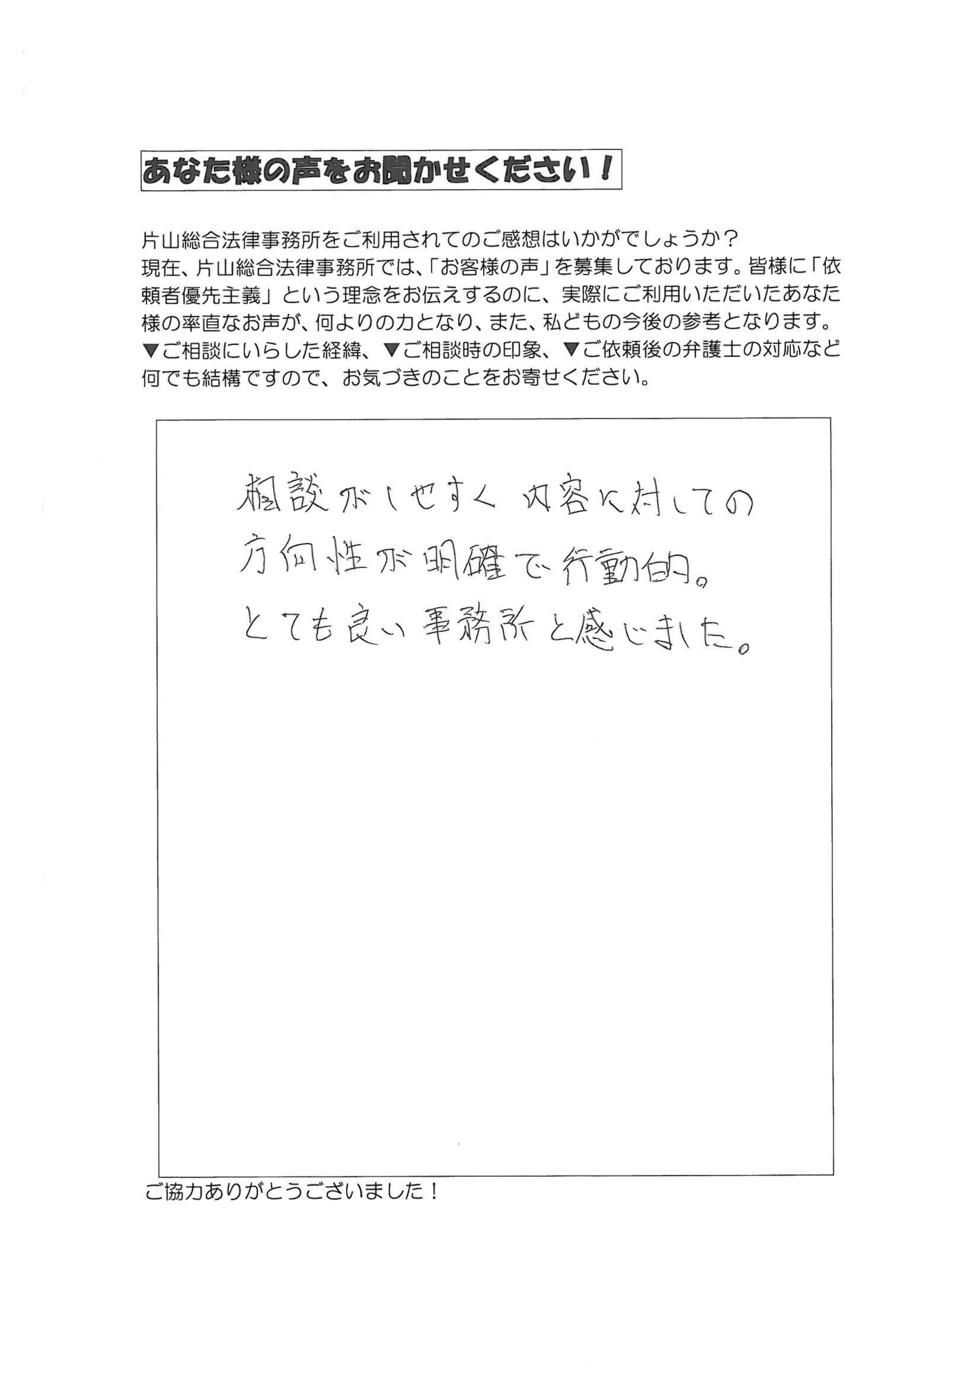 あなた様の声をお聞かせください！
片山総合法律事務所をご利用されてのご感想はいかがでしょうか？
現在、片山総合法律事務所では、「お客様の声」を募集しております。皆様に「依
頼者優先主義」という理念をお伝えするのに、実際にご利用いただいたあなた
様の率直なお声が、何よりの力となり、また、私どもの今後の参考となります。
▼ご相談にいらした経緯、▼ご相談時の印象、▼ご依頼後の弁護士の対応など
何でも結構ですので、お気づきのことをお寄せください。
相談がしやすく 内容に対しての
方向性が明確で行動的。
とても良い事務所と感じました。
ご協力ありがとうございました！